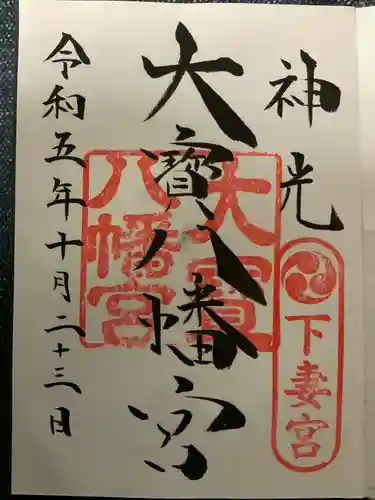 神光
下妻宮
大寳八幡宮
大寶八幡宮
令和五年十月二十三日